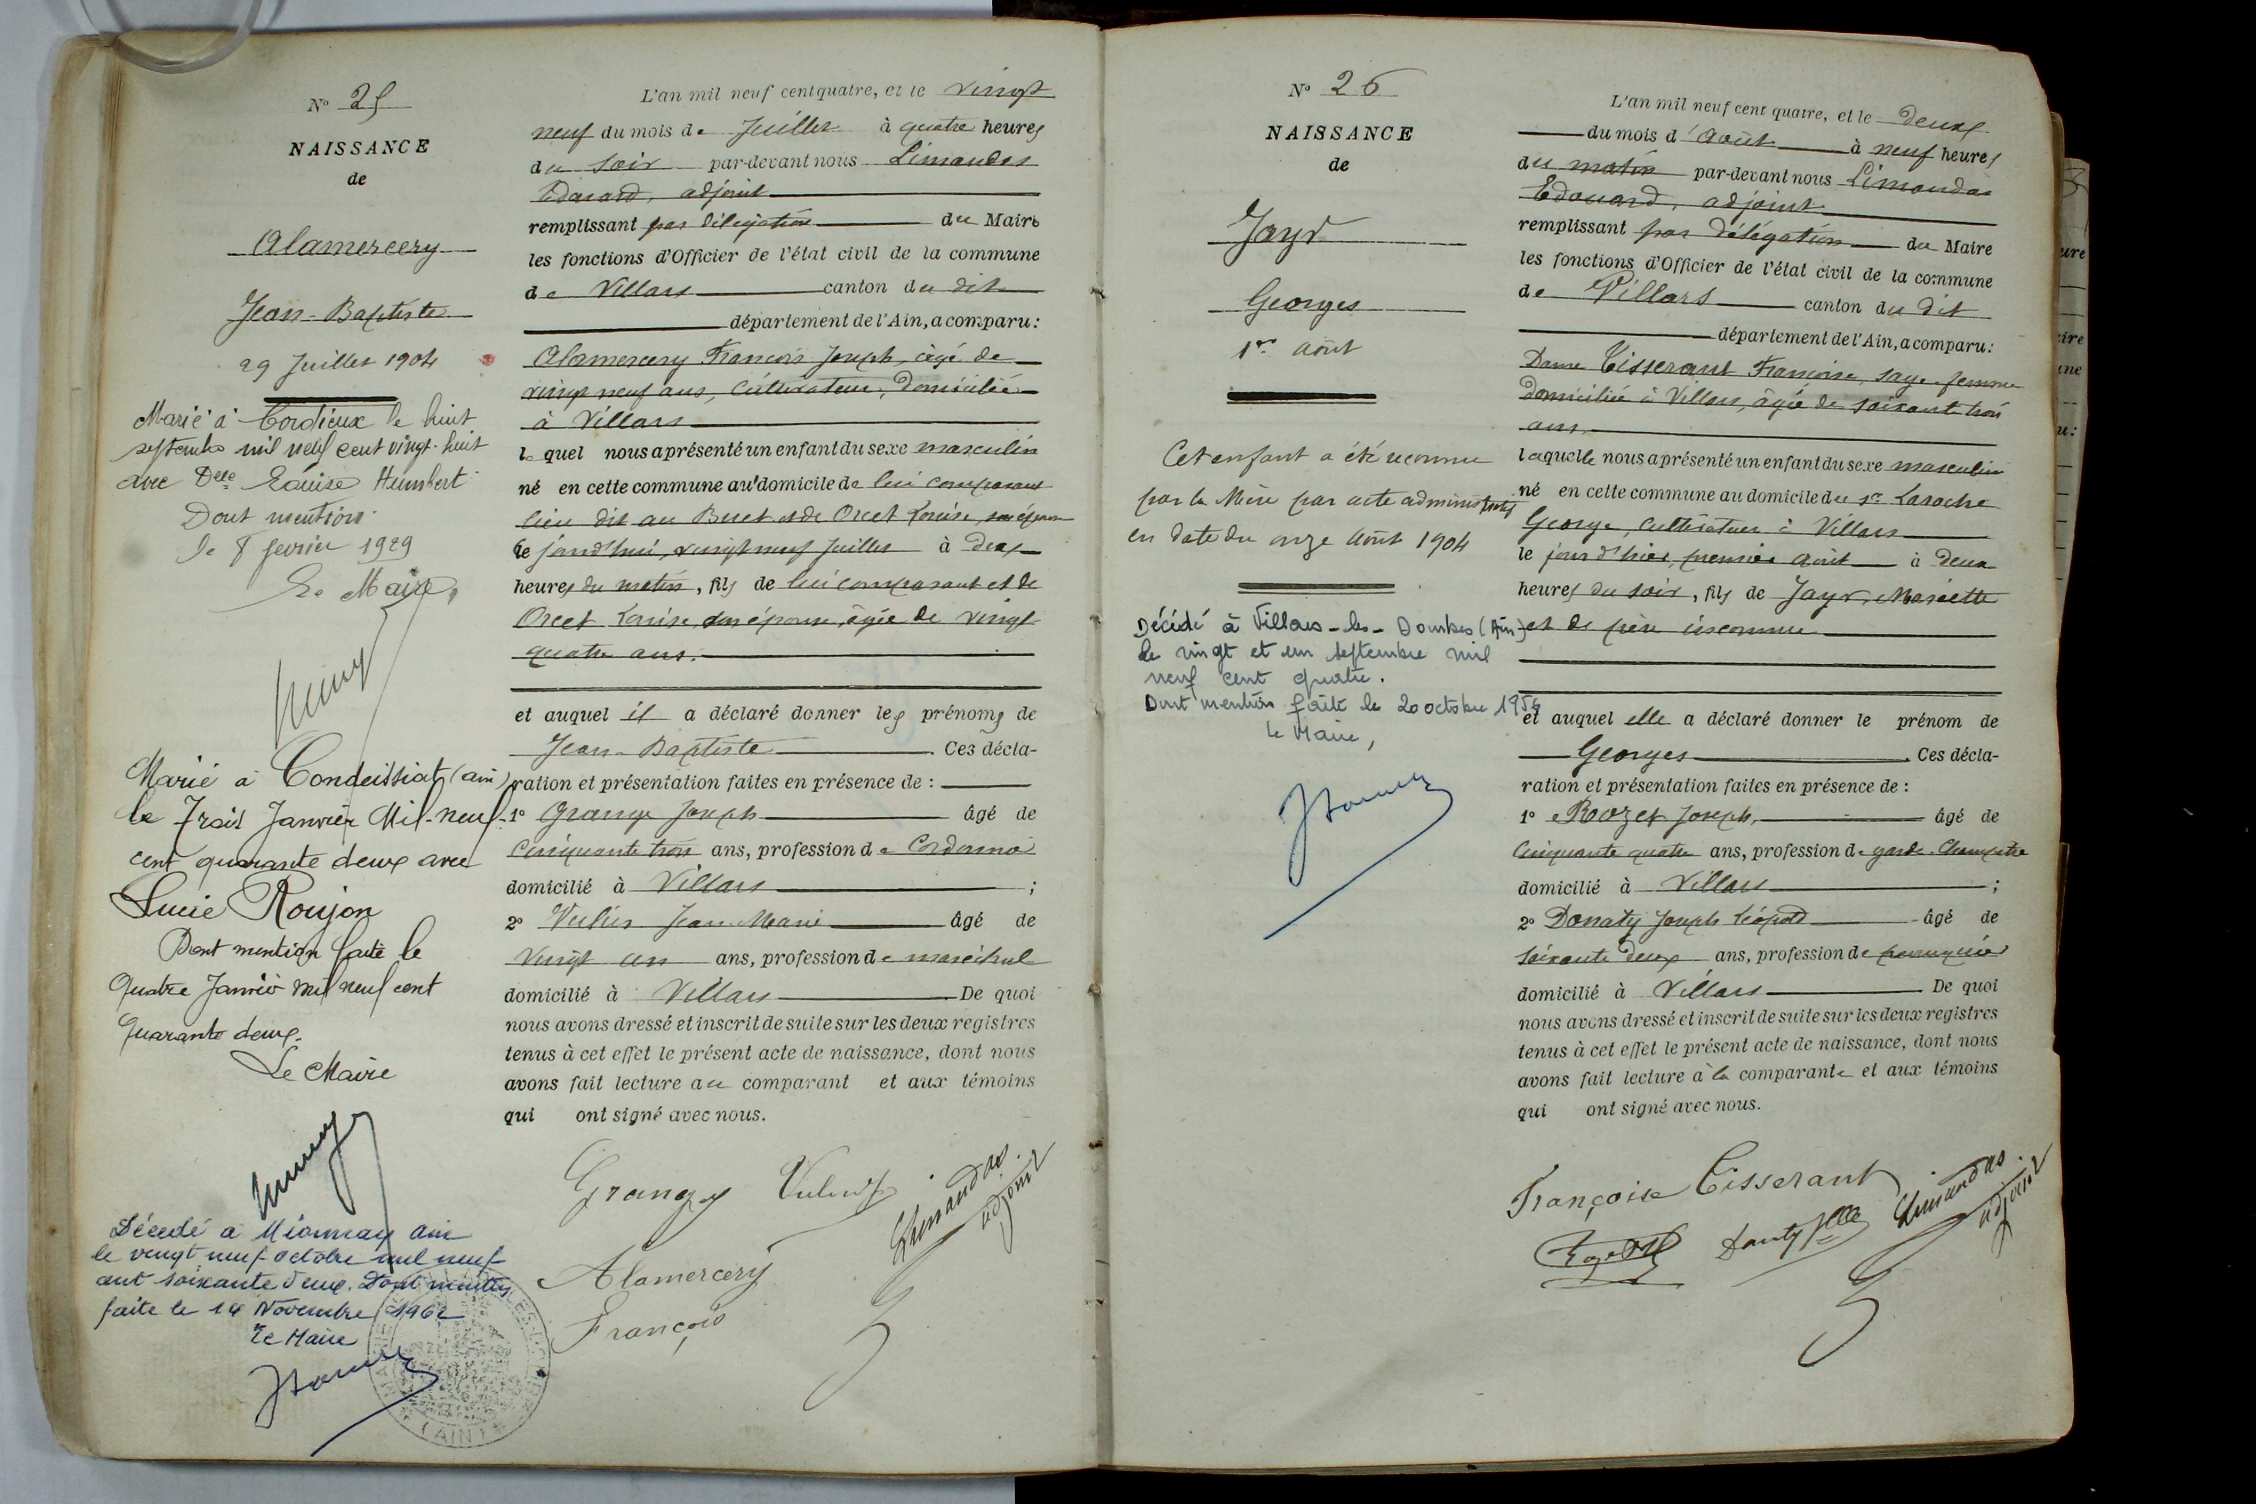 N° 25
NAISSANCE
de
Alamercery
Jean-Baptiste
29 Juillet 1904
Marié à Cordieux le huit
septembre mil neuf cent vingt-huit
avec Delle Louise Humbert
Dont mention
le 8 février 1929
Le Maire
Marié à Condeissiat (ain)
le Trois Janvier Mil-neuf-
cent quarante deux avec
Lucie Roujon
Dont mention faite le
Quatre Janvier mil neuf cent
Quarante deux.
Le Maire
Décédé à Mionnay ain
le vingt neuf octobre mil neuf
cent soixante deux. Dont mention
faite le 14 Novembre 1962
Le Maire
(AIN)
L'an mil neuf cent quatre, et le vingt
neuf du mois de Juillet à quatre heures
du soir par-devant nous Limandas
Edouard, adjoint
remplissant par délégation du Maire
les fonctions d'Officier de l'état civil de la commune
de Villars canton du dit
département de l'Ain, a comparu:
Alamercery François Joseph, âgé de
vingt neuf ans, Cultivateur, domicilié
à Villars
lequel nous a présenté un enfant du sexe masculin
né en cette commune au domicile de lui comparant
lieu dit au Buet et de Orcet Louise, son épouse
le jourd'hui, vingt neuf Juillet à deux
heures du matin, fils de lui comparant et de
Orcet Louise, son épouse, âgée de vingt
quatre ans.
et auquel il a déclaré donner les prénoms de
Jean-Baptiste. Ces décla-
ration et présentation faites en présence de :
1° Grange Joseph âgé de
cinquante trois ans, profession de
domicilié à Villars ;
2° Jean Marie âgé de
Vingt un ans, profession de maréchal
domicilié à Villars De quoi
nous avons dressé et inscrit de suite sur les deux registres
tenus à cet effet le présent acte de naissance, dont nous
avons fait lecture au comparant et aux témoins
qui ont signé avec nous.
Limandas
adjoint
Alamercery
François
N° 26
NAISSANCE
de
Jayr
Georges
1er Août
Cet enfant a été reconnu
par la Mère par acte
en date du onze Août 1904
Décédé à Villars-les-Dombes (Ain)
le vingt et un septembre mil
neuf cent quatre.
Dont mention faite le 20 octobre 1954
Le Maire,
L'an mil neuf cent quatre, et le deux
du mois d'Août à neuf heures
du matin par-devant nous Limandas
Edouard, adjoint
remplissant par délégation du Maire
les fonctions d'Officier de l'état civil de la commune
de Villars canton du dit
département de l'Ain, a comparu:
Dame Tisserant Françoise, sage-femme
domiciliée à Villars, âgée de soixante trois
ans,
laquelle nous a présenté un enfant du sexe masculin
né en cette commune au domicile du sr Laroche
George, cultivateur à Villars
le jour d'hier, premier Août à deux
heures du soir, fils de Jayr, Mariette
et de père inconnu
et auquel elle a déclaré donner le prénom de
Georges. Ces décla-
ration et présentation faites en présence de :
1° Rozet Joseph, âgé de
cinquante quatre ans, profession de garde-Champêtre
domicilié à Villars ;
2° Donaty Joseph Léopold âgé de
soixante deux ans, profession de perruquier
domicilié à Villars De quoi
nous avons dressé et inscrit de suite sur les deux registres
tenus à cet effet le présent acte de naissance, dont nous
avons fait lecture à la comparante et aux témoins
qui ont signé avec nous.
Françoise Tisserant
Limandas
adjoint